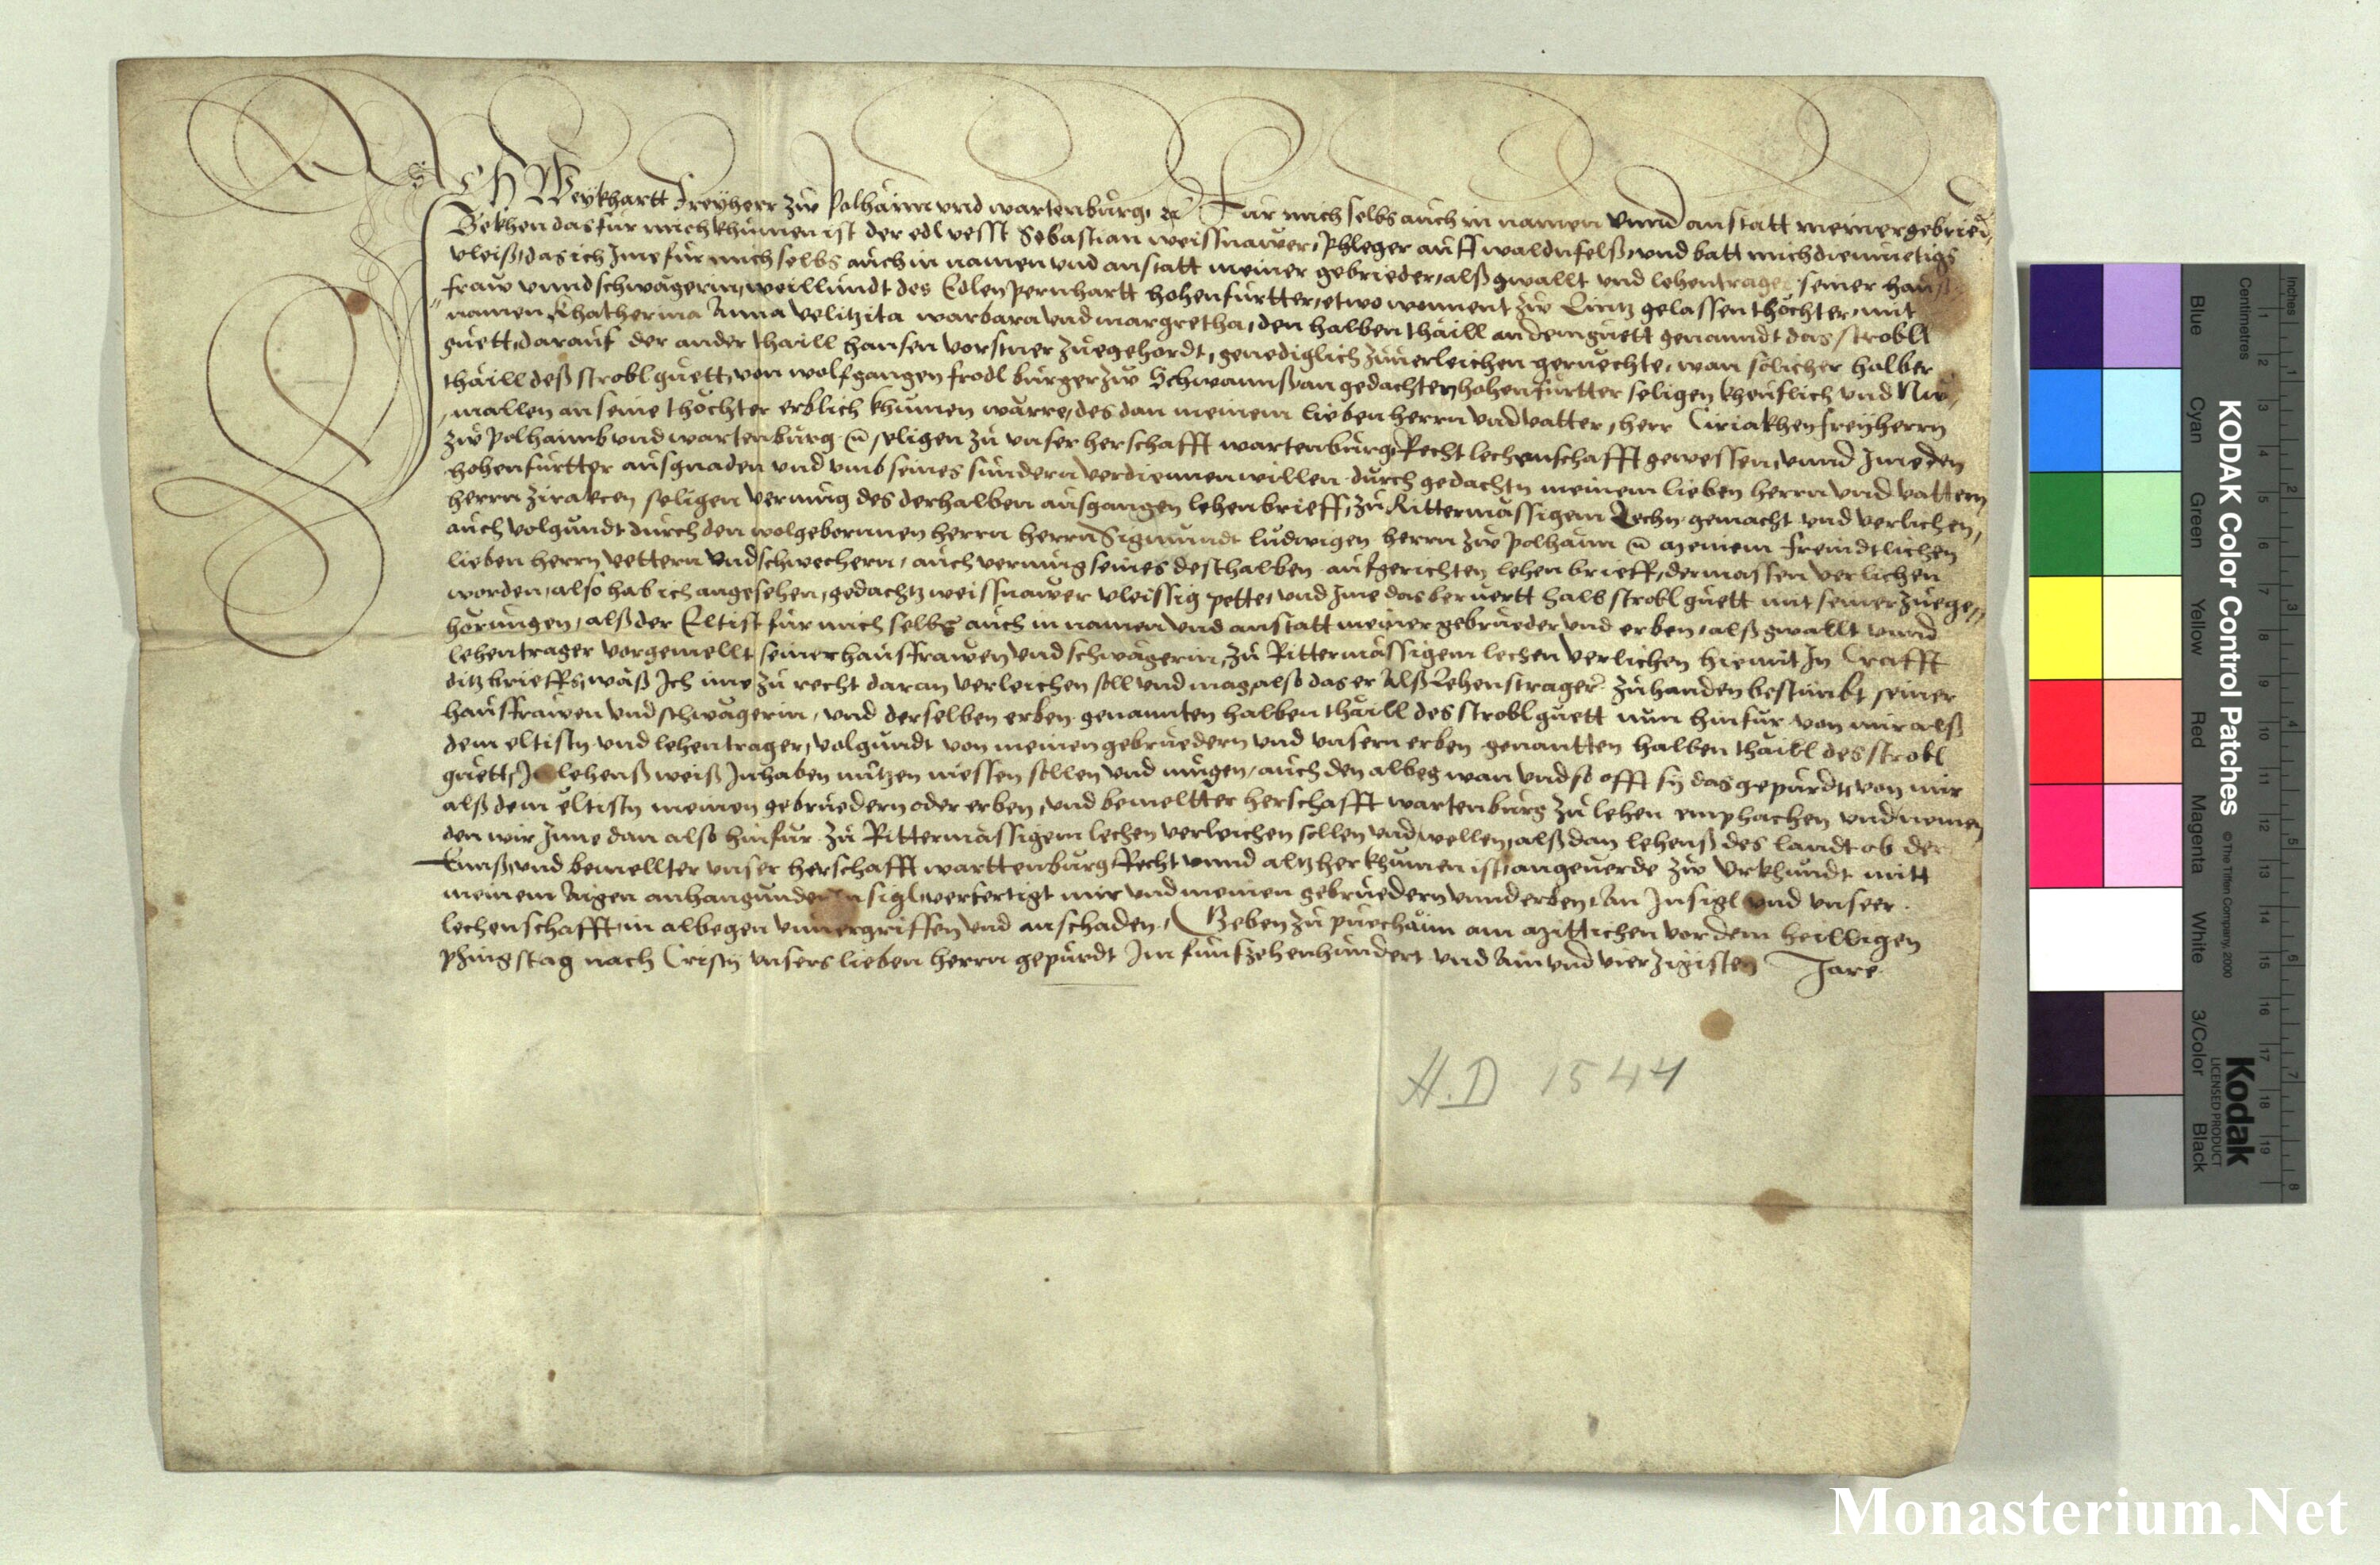 ICH Weykhartt Freyherr zw Polhaim vnd wartenburg, Für mich selbs auch in namen vnnd anstatt meiner gebrieder,
Bekhen das für mich khumen ist der edl vesst Sebastian weissnawer, Phleger auff waldnfelß, vnd batt mich diemuetigs
vleiß, das ich Ime für mich selbs auch in namen vnd anstatt meiner gebrieder, alß gwallt vnd lehentrager seiner hauß
fraw vnnd schwagerin, weillundt des Edlen Pernhartt hohenfurtter, etwo wonnent zw Lintz gelassen thochter, mit
namen Khatherina Anna velitzita warbara vnd margretha, den halben thaill an dem guett genanndt das Strobll
guett, darauf der ander thaill hansen vorstner zuegehordt, genediglich zuuerleichen geruechte, wan solicher halber
thaill deß strobl guett, von wolfgangen frodl burger zw Schwannß an gedachten hohenfurtter seligen kheuflich vnd
mallen an seine thochter erblich khumen warre, des dan meinem lieben herrn vnd vatter, herr Ciriakhen freyherrn
zw Polhaimb vnd wartenburg seligen zu vnser herschafft wartenburg Recht lechenschafft gewessen, vnnd Ime den
hohenfurtter aus gnaden vnd vmb seines sundern verdiennen willen durch gedachtn meinem lieben herrn vnd vattern
herrn Zirakcen seligen vermug des derhalben ausgangen lehenbrieff, zu Rittermassigem Lechn gemacht vnd verlichen,
auch volgundt durch den wolgebornnen herrn herrn Sigmundt ludwigen herrn zw Polhaim meinem freindtlichen
lieben herrn vettern vnd schwechern, auch vermug seines deshalben aufgerichten lehen brieff, dermassen verlichen
worden, also hab ich angesehen, gedachtz weissnawer vleissig pette, vnd Ime das beruertt halb strobl guett mit seiner zuege
horungen, alß der Eltist für mich selbs auch in namen vnd anstatt meiner gebrueder vnd erben, alß gwallt vnnd
lehentrager vorgemellt seiner hausfrawen vnd schwagerin, zu Rittermassigem lechen verlichen hiemit In Crafft
ditz brieffs, waß Ich ime zu recht daran verleichen soll vnd mag, also das er Alß Lehenstrager zu handen bestimbt seiner
hausfrawen vnd schwagerin, vnd derselben erben genannten halben thaill des strobl guett nun hinfur von mir alß
dem eltistn vnd lehentrager, volgundt von meinen gebruedern vnd vnsern erben genantten halben thaill des strobl
guett, In lehenß weiß Inhaben nutzen niessen sollen vnd mugen, auch den albeg wan vnd so offt sy das gepurdt, von mir
alß dem eltistn meinen gebruedern oder erben, vnd bemeltter herschafft wartenburg zu lehen emphachen vnd nemen
den wir Inne dan also hinfur zu Rittermassigem lechen verleichen sollen vnd wellen, alß dan lehenß des landt ob der
Ennß, vnd bemellter vnser herschafft warttenburg Recht vnnd altz herkhumen ist, angeuerde zw Vrkhundt mitt
meinem Aigen anhangunden Insigl, verfertigt mir vnd meinen gebruedern vnnd erben, An Insigl vnd vnseer
lechenschafft, in albegen vnuergriffen vnd an schaden, Geben zu puechaim am mittichen vor dem heilligen
phingstag nach Cristy vnsers lieben herrn gepurdt Im funfzehenhundert vnd Ain vnd vierzigisten Jare
H.D 1544
KODAK Color Control Patches
© The Tiffen Company, 2000
Kodak
LICENSED PRODUCT
Inches
Centimetres
Blue Cyan Green Yellow Red Magenta White 3/Color Black
Monasterium.Net